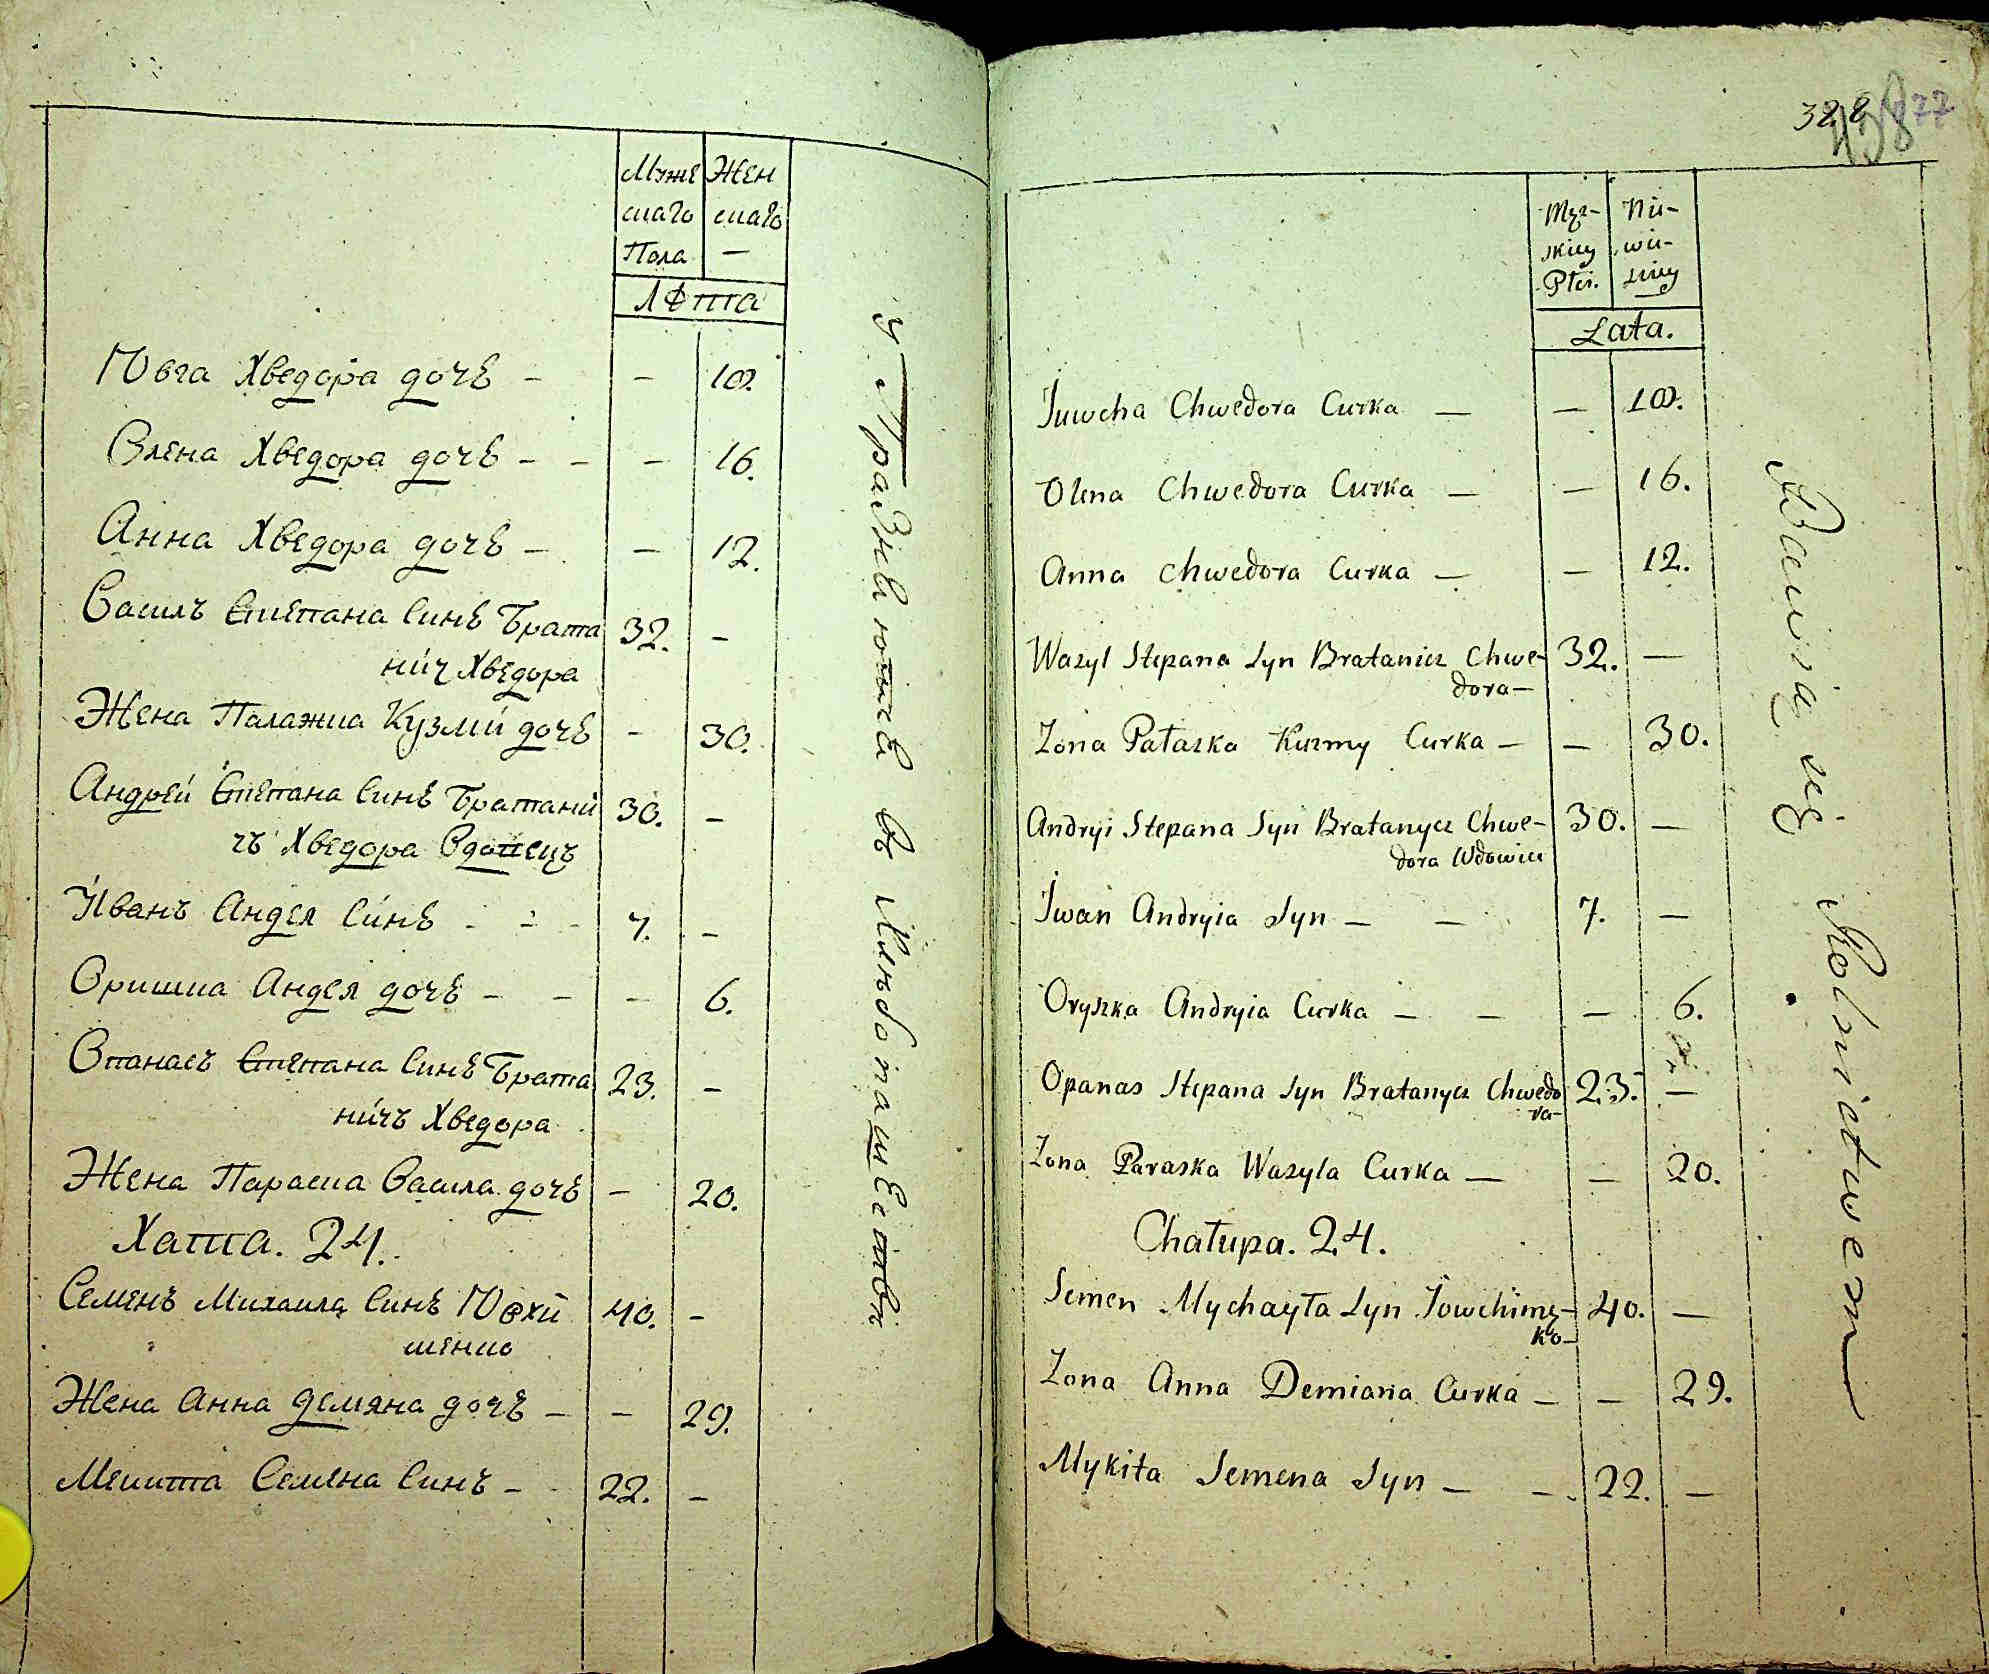 Муже Жен
скаго скаго
Пола —
Лѣта
Ювга Хведора дочъ - - 10.
Олена Хведора дочъ - - - 16.
Анна Хведора дочъ - - 12.
Василъ Степана Синъ Брата 32. -
нич Хведора
Жена Палажка Кузми дочъ - 30.
Андрей Степана Синъ Братани 30. -
чъ Хведора Вдовецъ
Иванъ Андея Синъ - - - 7. -
Оришка Андея дочъ - - - 6.
Опанасъ Степана Синъ Брата 23. -
ничъ Хведора
Жена Параска Васила дочъ - 20.
Хата. 24.
Семенъ Михаила Синъ Ювхи 40. -
менко
Жена Анна Демяна дочъ - - 29.
Микита Семена Синъ - 22. -
328 77
Męz- Nie-
skiey wie-
Płci. sciey
Lata.
Juwcha Chwedora Curka — — 10.
Olena Chwedora Curka — — 16.
Anna Chwedora Curka — — 12.
Wasyl Stepana Syn Bratanicz Chwe- 32. —
dora —
Zona Pałaszka Kuzmy Curka — — 30.
Andryi Stepana Syn Bratanycz Chwe- 30. —
dora Wdowiec
Iwan Andryia Syn — — 7. —
Oryszka Andryia Curka — — — 6.
Opanas Stepana Syn Bratanycz Chwedo 23. —
ra-
Zona Paraska Wasyla Curka — — 20.
Chałupa. 24.
Semen Mychayła Syn Jowchimę- 40. —
ko —
Zona Anna Demiana Curka — — 29.
Mykita Semena Syn — — 22. —
Bawią się Rolnictwem